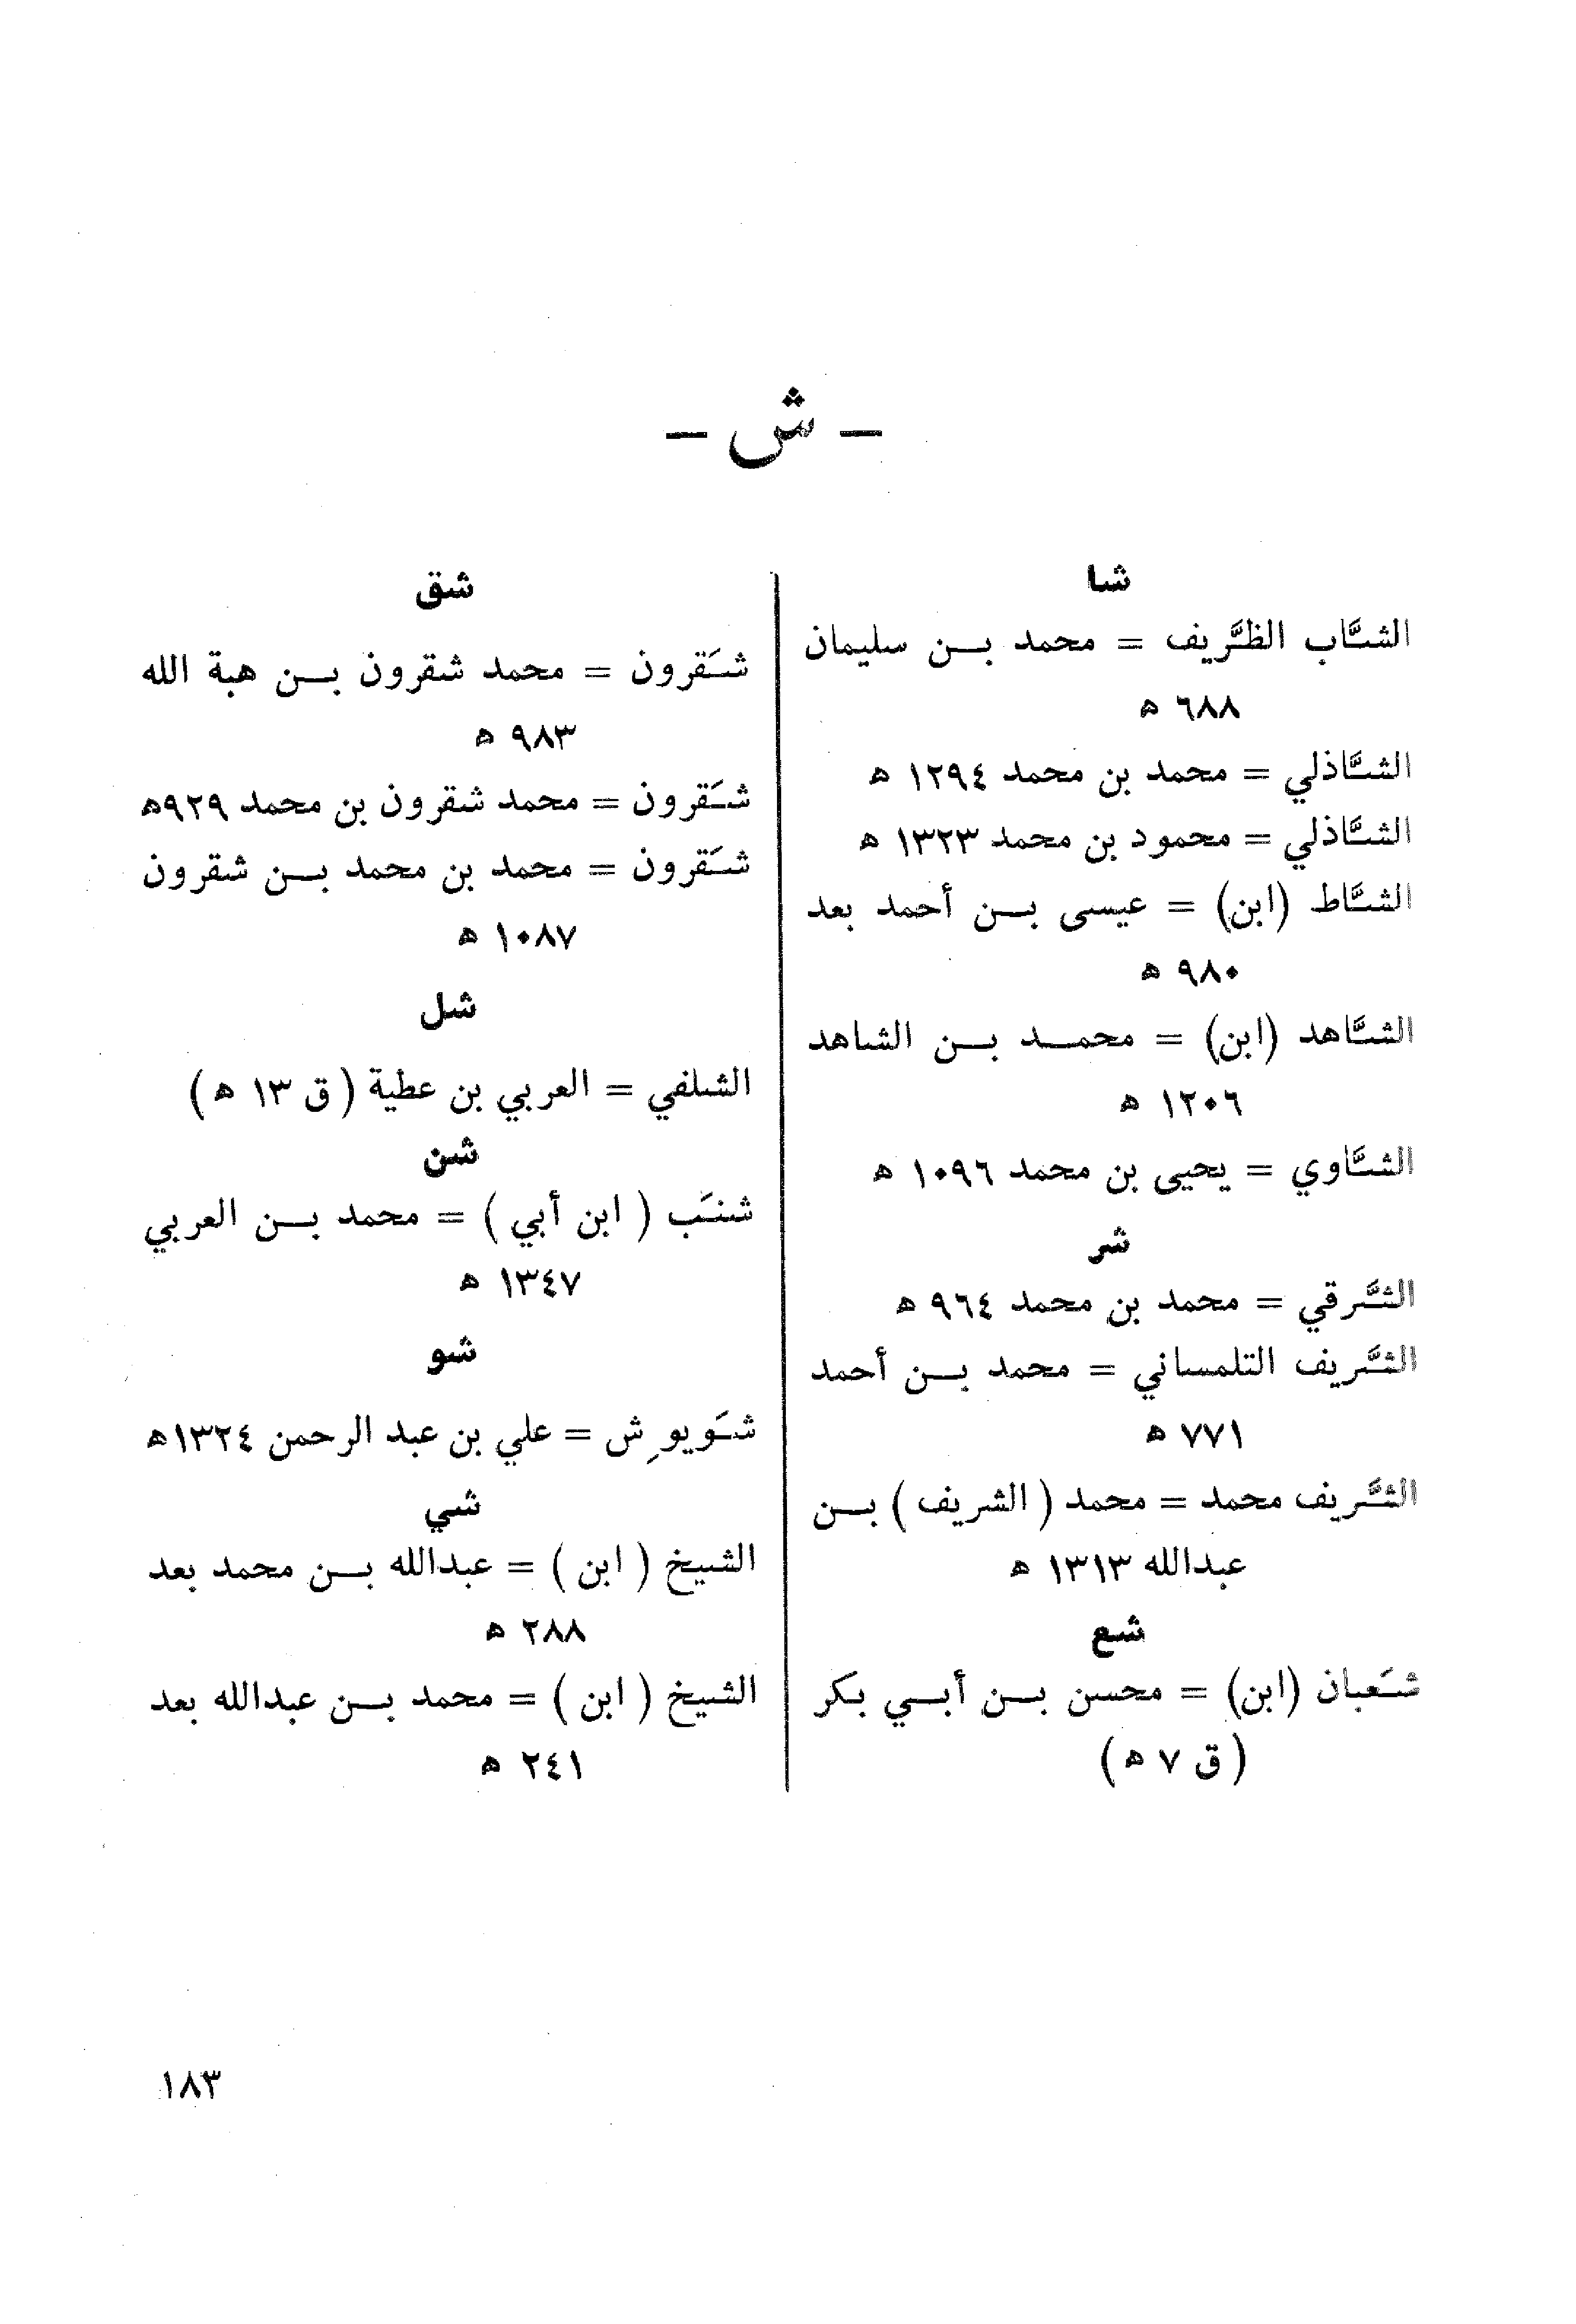 – ش –
شا
الشَّاب الظَّريف = محمد بـن سليمان
٦٨٨ ه
الشَّاذلي = محمد بن محمد ١٢٩٤ ه
الشَّاذلي = محمود بن محمد ١٣٢٣ ه
الشَّاط (ابن) = عيسى بـن أحمد بعد
٩٨٠ ه
الشَّاهد (ابن) = محمـد بـن الشاهد
١٢٠٦ ه
الشَّاوي = يحيى بن محمد ١٠٩٦ ه
شر
الشَّرقي = محمد بن محمد ٩٦٤ ه
الشَّريف التلمساني = محمد بـن أحمد
٧٧١ ه
الشَّريف محمد = محمد ( الشريف ) بـن
عبدالله ١٣١٣ ه
شع
شَعبان (ابن) = محسن بـن أبـي بكر
( ق ٧ ه )
شق
شَقرون = محمد شقرون بـن هبة الله
٩٨٣ ه
شَقرون = محمد شقرون بن محمد ٩٢٩ه
شَقرون = محمد بن محمد بـن شقرون
١٠٨٧ ه
شل
الشلفي = العربي بن عطية ( ق ١٣ ه )
شن
شنَب ( ابن أبي ) = محمد بـن العربي
١٣٤٧ ه
شو
شَويوِش = علي بن عبد الرحمن ١٣٢٤ه
شي
الشيخ ( ابن ) = عبدالله بـن محمد بعد
٢٨٨ ه
الشيخ ( ابن ) = محمد بـن عبدالله بعد
٢٤١ ه
١٨٣